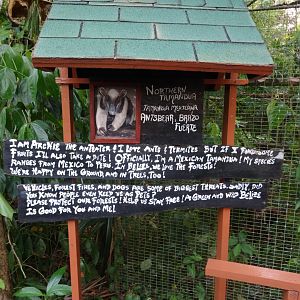 Northern
Tamandua
Tamandua Mexicana
Antsbear, Brazo
Fuerte
I am Archie the anteater & I love ants & termites. But if I find some
fruits I'll also take a bite! Officially, I'm a Mexican Tamandua! My species
ranges from Mexico to Peru. In Belize, we love the forests!
We're happy on the ground and in trees, too!
Vehicles, forest fires, and dogs are some of biggest threats. Simply, did
you know people even keep us as pets?
Please protect our forests! Help us stay free! A green and wild Belize
is good for you and me!